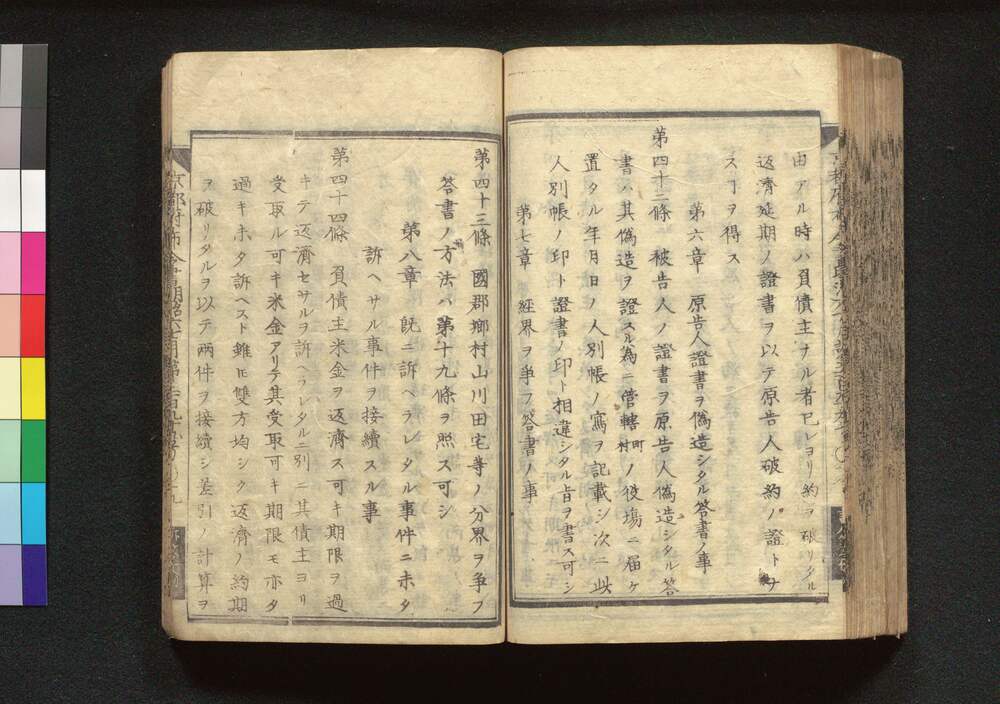 由アル時ハ負債主ナル者已レヨリ約ヲ破リタル
返濟延期ノ證書ヲ以テ原告人破約ノ證トナ
スヿヲ得ス
第六章　原告人證書ヲ偽造シタル答書ノ事
第四十二條　被告人ノ證書ヲ原告人偽造シタル答
書ハ其偽造ヲ證スル為ニ管轄町村ノ役場ニ届ケ
置タル年月日ノ人別帳ノ寫ヲ記載シ次ニ此
人別帳ノ印ト證書ノ印ト相違シタル旨ヲ書ス可シ
第七章　經界ヲ爭フ答書ノ事
第四十三條　國郡鄉村山川田宅等ノ分界ヲ爭フ
答書ノ方法ハ第十九條ヲ照ス可シ
第八章　既ニ訴ヘラレタル事件ニ未タ
訴ヘサル事件ヲ接續スル事
第四十四條　負債主米金ヲ返濟ス可キ期限ヲ過
キテ返濟セサルヲ訴ヘラレタルニ別ニ其債主ヨリ
受取ル可キ米金アリテ其受取可キ期限モ亦タ
過キ未タ訴ヘスト雖𪜈雙方均シク返濟ノ約期
ヲ破リタルヲ以テ兩件ヲ接續シ差引ノ計算ヲ
京都府布令書明治六年八月第